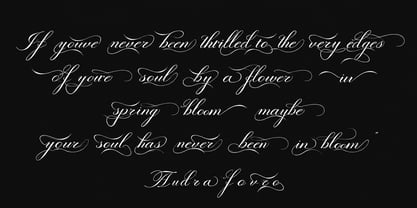 If youve never been thrilled to the very edges
of your soul by a flower in
spring bloom maybe
your soul has never been in bloom
Audra Fonzo